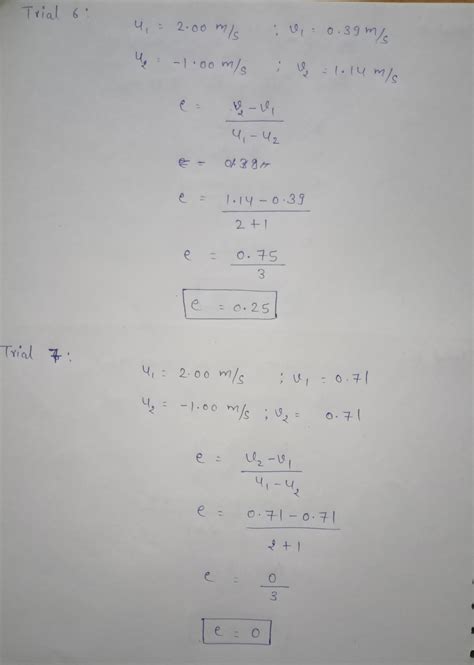 Trial 6: u₁ = 2.00 m/s ; v₁ = 0.39 m/s
u₂ = -1.00 m/s ; v₂ = 1.14 m/s
e = v₂ - v₁ / u₁ - u₂
e =
e = 1.14 - 0.39 / 2+1
e = 0.75 / 3
e = 0.25
Trial 7:
u₁ = 2.00 m/s ; v₁ = 0.71
u₂ = -1.00 m/s ; v₂ = 0.71
e = v₂ - v₁ / u₁ - u₂
e = 0.71 - 0.71 / 2+1
e = 0 / 3
e = 0